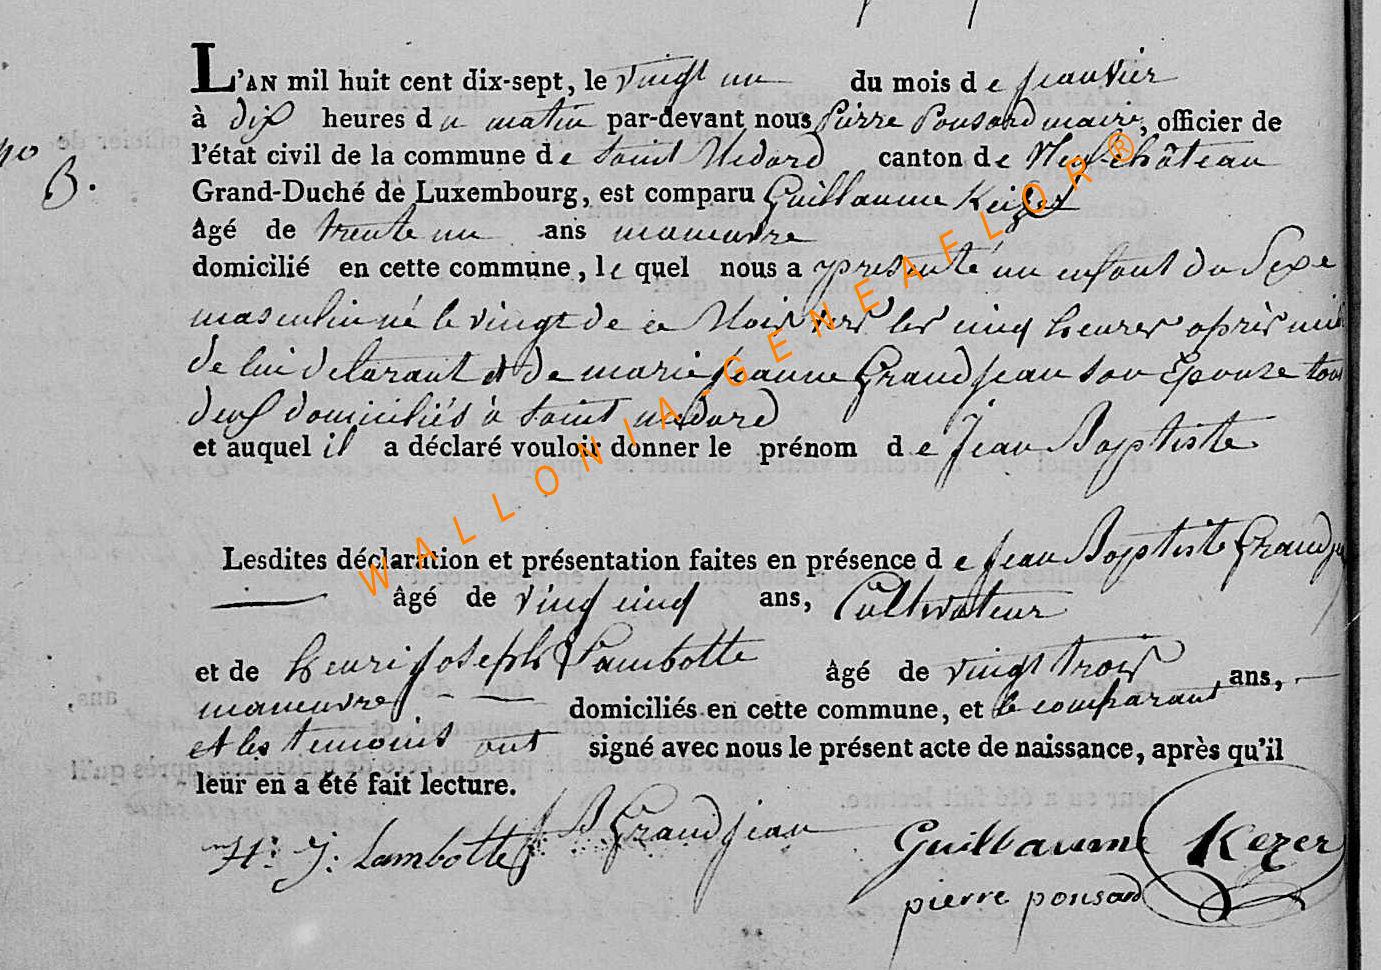 L'AN mil huit cent dix-sept, le vingt un du mois de Janvier
à dix heures du matin par-devant nous Pierre Ponsard maire, officier de
no
3.
l'état civil de la commune de Saint Medard canton de Neufchâteau
Grand-Duché de Luxembourg, est comparu Guillaume Keizer
âgé de trente un ans maneuvre
domicilié en cette commune, le quel nous a presenté un enfant du Sexe
masculin né le vingt de ce Mois vers les cinq heures après midi
de lui declarant et de marie Jeanne Grandjean son Epouse tous
deux domiciliés à Saint medard
et auquel il a déclaré vouloir donner le prénom de Jean Baptiste
Lesdites déclaration et présentation faites en présence de Jean Baptiste Grandjean
âgé de vingt cinq ans, Cultivateur
et de henri Joseph Lambotte âgé de vingt trois ans,
maneuvre domiciliés en cette commune, et le comparant
et les temoins ont signé avec nous le présent acte de naissance, après qu'il
leur en a été fait lecture.
H: J: Lambotte J B Grandjean Guillaume Kezer
pierre ponsard
WALLONIA-GENEAFLOR®